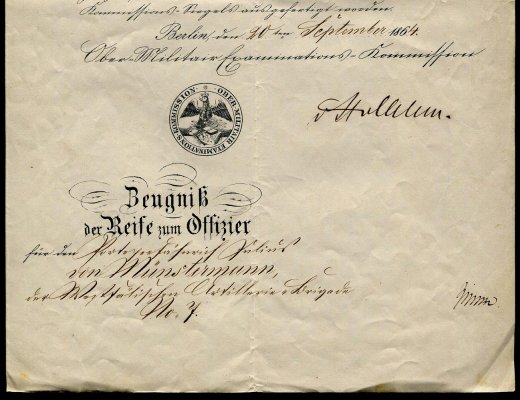 Kommissions-Siegels ausgefertigt worden.
Berlin, den 20ten September 1864.
Ober-Militair-Examinations-Kommission
OBER-MILITAIR EXAMINATIONS KOMMISSION
Zeugniß
der Reife zum Offizier
für den Portepeefähnrich Julius
von Münstermann,
der Westfälischen Artillerie-Brigade
No. 7.